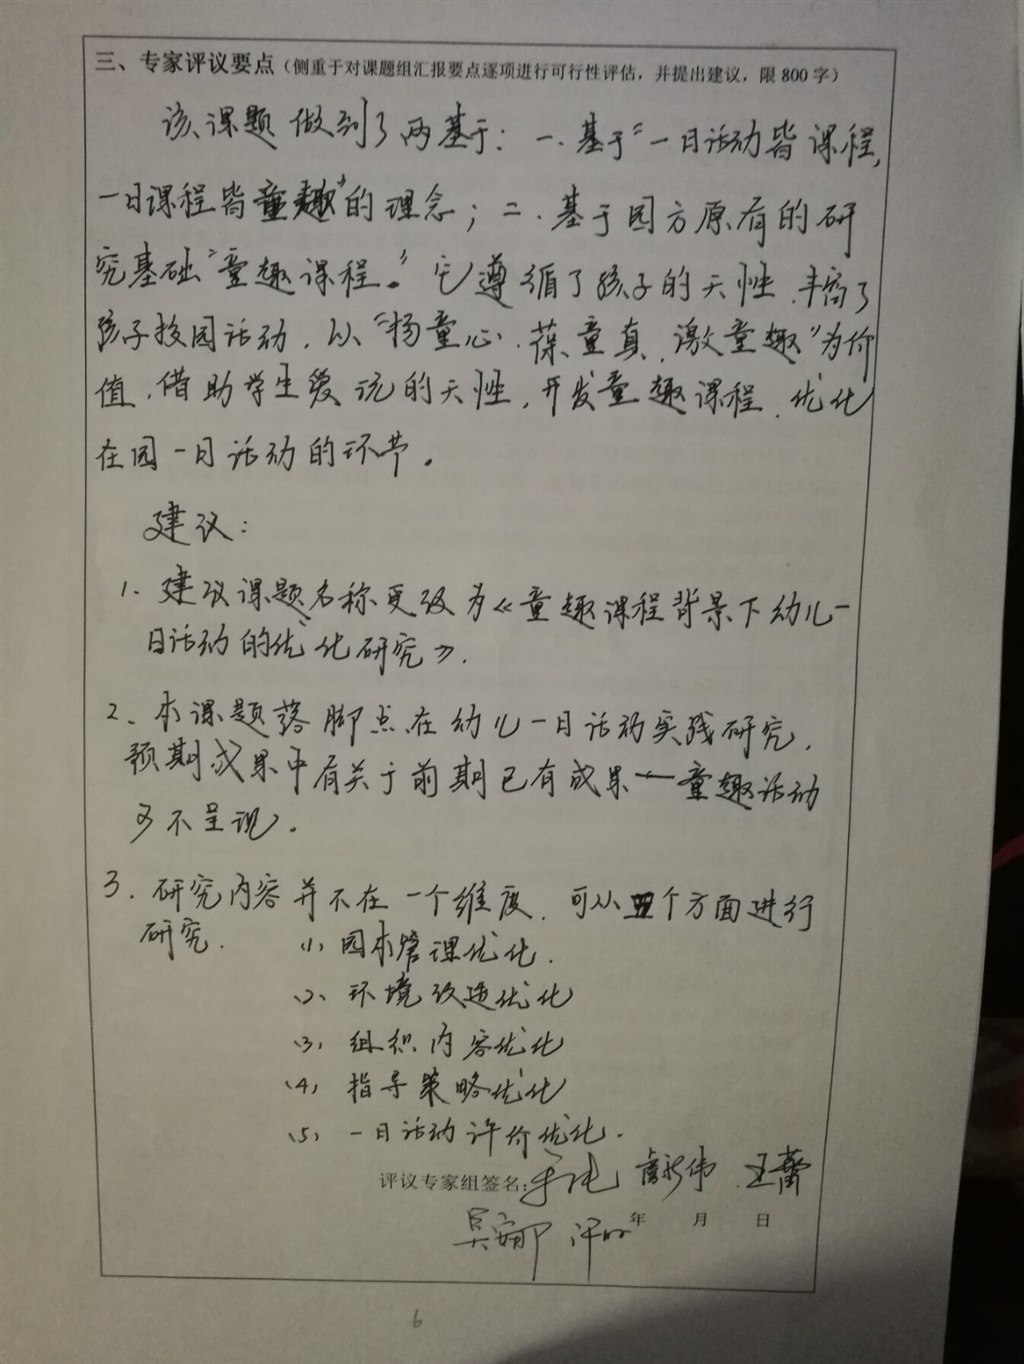 三、专家评议要点（侧重于对课题组汇报要点逐项进行可行性评估，并提出建议，限800字）
该课题做到了两基于：一.基于“一日活动皆课程，
一日课程皆童趣”的理念；二.基于园方原有的研
究基础“童趣课程。”它遵循了孩子的天性，丰富了
孩子技园活动，以“扬童心，葆童真，激童趣”为价
值，借助学生爱玩的天性，开发童趣课程，优化
在园一日活动的环节。
建议：
1. 建议课题名称更改为《童趣课程背景下幼儿一
日活动的优化研究》.
2、本课题落脚点在幼儿一日活动实践研究，
预期成果中有关于前期已有成果——童趣活动
可不呈现.
3. 研究内容并不在一个维度，可从五个方面进行
研究.
(1) 园本管理优化.
(2) 环境改造优化
(3) 组织内容优化
(4) 指导策略优化
(5) 一日活动评价优化.
评议专家组签名： 王蕾
年 月 日
6